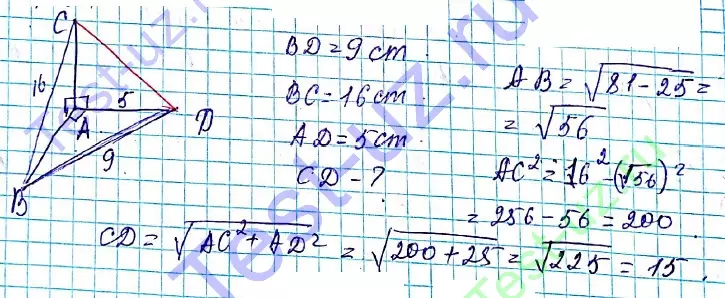 C
16
5
A
D
9
B
BD = 9 cm
BC = 16 cm
AD = 5 cm
CD - ?
AB = √81 - 25 =
= √56
AC² = 16² - (√56)²
= 256 - 56 = 200
CD = √AC² + AD² = √200 + 25 = √225 = 15.
Test-uz.ru
Test-uz.ru
Test-uz.ru